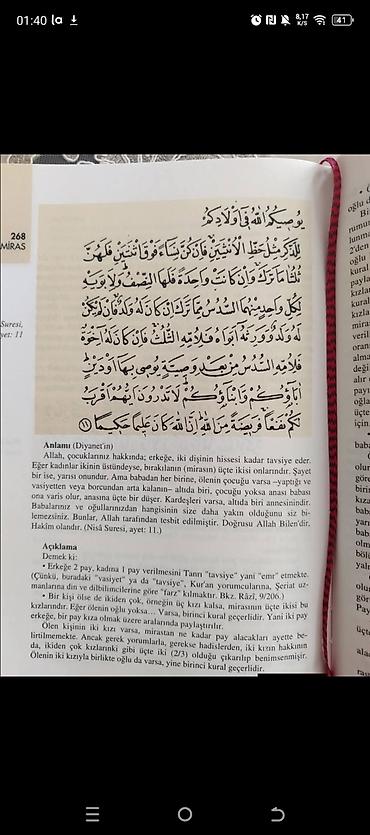 01:40
8,17
K/S
41
268
MİRAS
Suresi,
yet: 11
يُوصِيكُمُ اللّٰهُ فِي أَوْلَادِكُمْ
لِلذَّكَرِ مِثْلُ حَظِّ الْأُنْثَيَيْنِ فَإِنْ كُنَّ نِسَاءً فَوْقَ اثْنَتَيْنِ فَلَهُنَّ
ثُلُثَا مَا تَرَكَ وَإِنْ كَانَتْ وَاحِدَةً فَلَهَا النِّصْفُ وَلِأَبَوَيْهِ
لِكُلِّ وَاحِدٍ مِنْهُمَا السُّدُسُ مِمَّا تَرَكَ إِنْ كَانَ لَهُ وَلَدٌ فَإِنْ لَمْ يَكُنْ
لَهُ وَلَدٌ وَوَرِثَهُ أَبَوَاهُ فَلِأُمِّهِ الثُّلُثُ فَإِنْ كَانَ لَهُ إِخْوَةٌ
فَلِأُمِّهِ السُّدُسُ مِنْ بَعْدِ وَصِيَّةٍ يُوصِي بِهَا أَوْ دَيْنٍ
آبَاؤُكُمْ وَأَبْنَاؤُكُمْ لَا تَدْرُونَ أَيُّهُمْ أَقْرَبُ
لَكُمْ نَفْعًا فَرِيضَةً مِنَ اللّٰهِ إِنَّ اللّٰهَ كَانَ عَلِيمًا حَكِيمًا ﴿١١﴾
Anlamı (Diyanet'in)
Allah, çocuklarınız hakkında; erkeğe, iki dişinin hissesi kadar tavsiye eder.
Eğer kadınlar ikinin üstündeyse, bırakılanın (mirasın) üçte ikisi onlarındır. Şayet
bir ise, yarısı onundur. Ama babadan her birine, ölenin çocuğu varsa –yaptığı ve
vasiyetten veya borcundan arta kalanın– altıda biri, çocuğu yoksa anası babası
ona varis olur, anasına üçte bir düşer. Kardeşleri varsa, altıda biri annesinindir.
Babalarınız ve oğullarınızdan hangisinin size daha yakın olduğunu siz bi-
lemezsiniz. Bunlar, Allah tarafından tesbit edilmiştir. Doğrusu Allah Bilen'dir,
Hakîm olandır. (Nisâ Suresi, ayet: 11.)
Açıklama
Demek ki:
• Erkeğe 2 pay, kadına 1 pay verilmesini Tanrı "tavsiye" yani "emr" etmekte.
(Çünkü, buradaki "vasiyet" ya da "tavsiye", Kur'an yorumcularına, Şeriat uz-
manlarına din ve dilbilimcilerine göre "farz" kılmaktır. Bkz. Râzî, 9/206.)
• Bir kişi ölse de ikiden çok, örneğin üç kızı kalsa, mirasının üçte ikisi bu
kızlarındır. Eğer ölenin oğlu yoksa... Varsa, birinci kural geçerlidir. Yani iki pay
erkeğe, bir pay kıza olmak üzere aralarında paylaştırılır.
Ölen kişinin iki kızı varsa, mirastan ne kadar pay alacakları ayette be-
lirtilmemekte. Ancak gerek yorumlarla, gerekse hadislerden, iki kızın hakkının
da, ikiden çok kızlarınki gibi üçte iki (2/3) olduğu çıkarılıp benimsenmiştir.
Ölenin iki kızıyla birlikte oğlu da varsa, yine birinci kural geçerlidir.